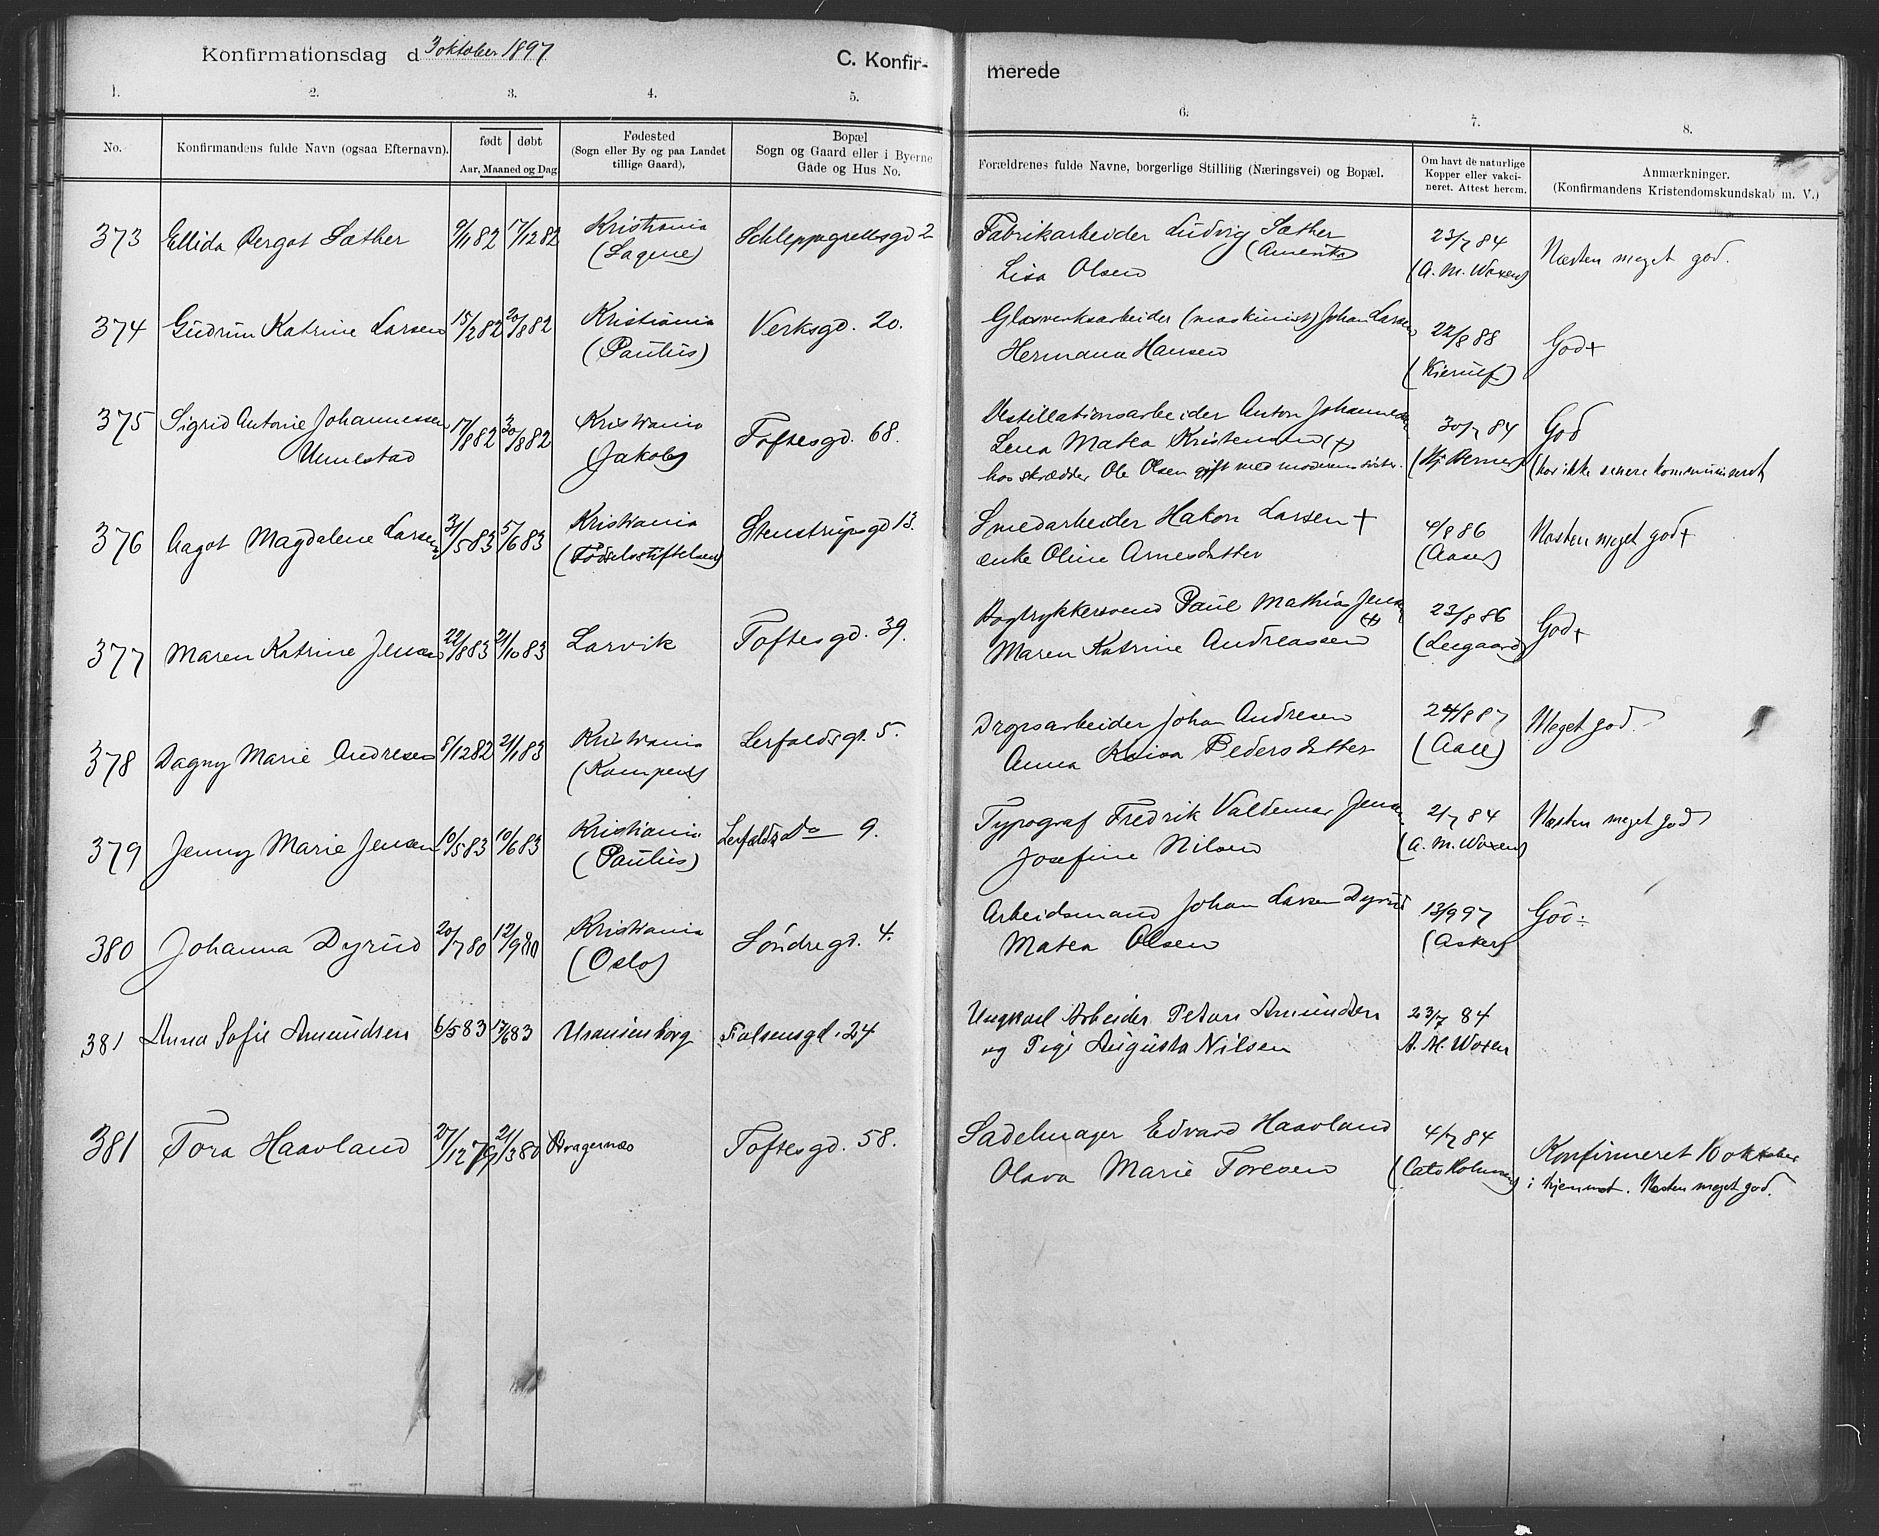 Konfirmationsdag d 3 oktober 1897
C. Konfir-
merede
1. 2. 3. 4. 5. 6. 7. 8.
No.
Konfirmandens fulde Navn (ogsaa Efternavn).
født døbt
Aar, Maaned og Dag
Fødested
(Sogn eller By og paa Landet
tillige Gaard),
Bopæl
Sogn og Gaard eller i Byerne
Gade og Hus No.
Forældrenes fulde Navne, borgerlige Stilling (Næringsvei) og Bopæl.
Om havt de naturlige
Kopper eller vakci-
neret. Attest herom.
Anmærkninger.
(Konfirmandens Kristendomskundskab m. V.)
373 Ellida Bergot Sæther 9/11 82 17/12 82 Kristiania Schleppegrellsgd 2 Fabrikarbeider Ludvig Sæther 23/7 84 Næsten meget god.
(Sagene) (Amerika)
Lisa Olsen (A. M. Woxen)
374 Gudrun Katrine Larsen 15/2 82 20/8 82 Kristiania Verksgd. 20. Glasverksarbeider (maskinist) Johan Larsen 22/8 88 God+
(Paulus) Hermana Hansen (Kierulf)
375 Sigrid Antonie Johannessen 17/8 82 30/8 82 Kristiania Toftesgd. 68. Destillationsarbeider Anton Johannes 30/7 84 God
Unnestad (Jakob) Lena Matea Kristensen (+) (Hj. Berner)
hos skrædder Ole Olsen gift med moderens søster. (har ikke senere kommuniceret)
376 Aagot Magdalene Larsen 31/5 83 5/6 83 Kristiania Stenstrupsgd 13. Smedarbeider Hakon Larsen + 4/8 86 Næsten meget god+
(Fødselsstiftelsen) enke Oline Arnesdatter (Aaser)
377 Maren Katrine Jensen 22/8 83 21/10 83 Larvik Toftesgd. 39. Bogtrykkersvend Paul Mathias Jensen 23/8 86 God+
(+)
Maren Katrine Andreassen (Leegaard)
378 Dagny Marie Andresen 8/12 82 21/1 83 Kristiania Lerfaldsgt. 5. Dropsarbeider Johan Andresen 24/8 87 Meget god
(Kampen) Anna Pedersdatter (Aall)
379 Jenny Marie Jensen 10/5 83 10/6 83 Kristiania Lerfalds Do 9. Typograf Fredrik Valdemar Jensen 2/7 84 Næsten meget god
(Paulus) Josefine Nilsen (A. M. Woxen)
380 Johanna Dyrud 20/7 80 12/9 80 Kristiania Søndregd. 4. Arbeidsmand Johan Larsen Dyrud 13/9 97 God
(Oslo) Matea Olsen (Asker)
381 Anna Sofie Amundsen 6/5 83 17/6 83 Uranienborg Falsensgd. 24 Ungkarl Arbeider Petter Amundsen 23/7 84
og Pige Augusta Nilsen A. M. Woxen
381 Tora Haavland 27/12 79 21/3 80 Bragernæs Toftesgd. 58. Sadelmager Edvard Haavland 4/7 84 Konfirmeret 16 oktober
Olava Marie Toresen (Cato Holmsen) i hjemmet. Næsten meget god.